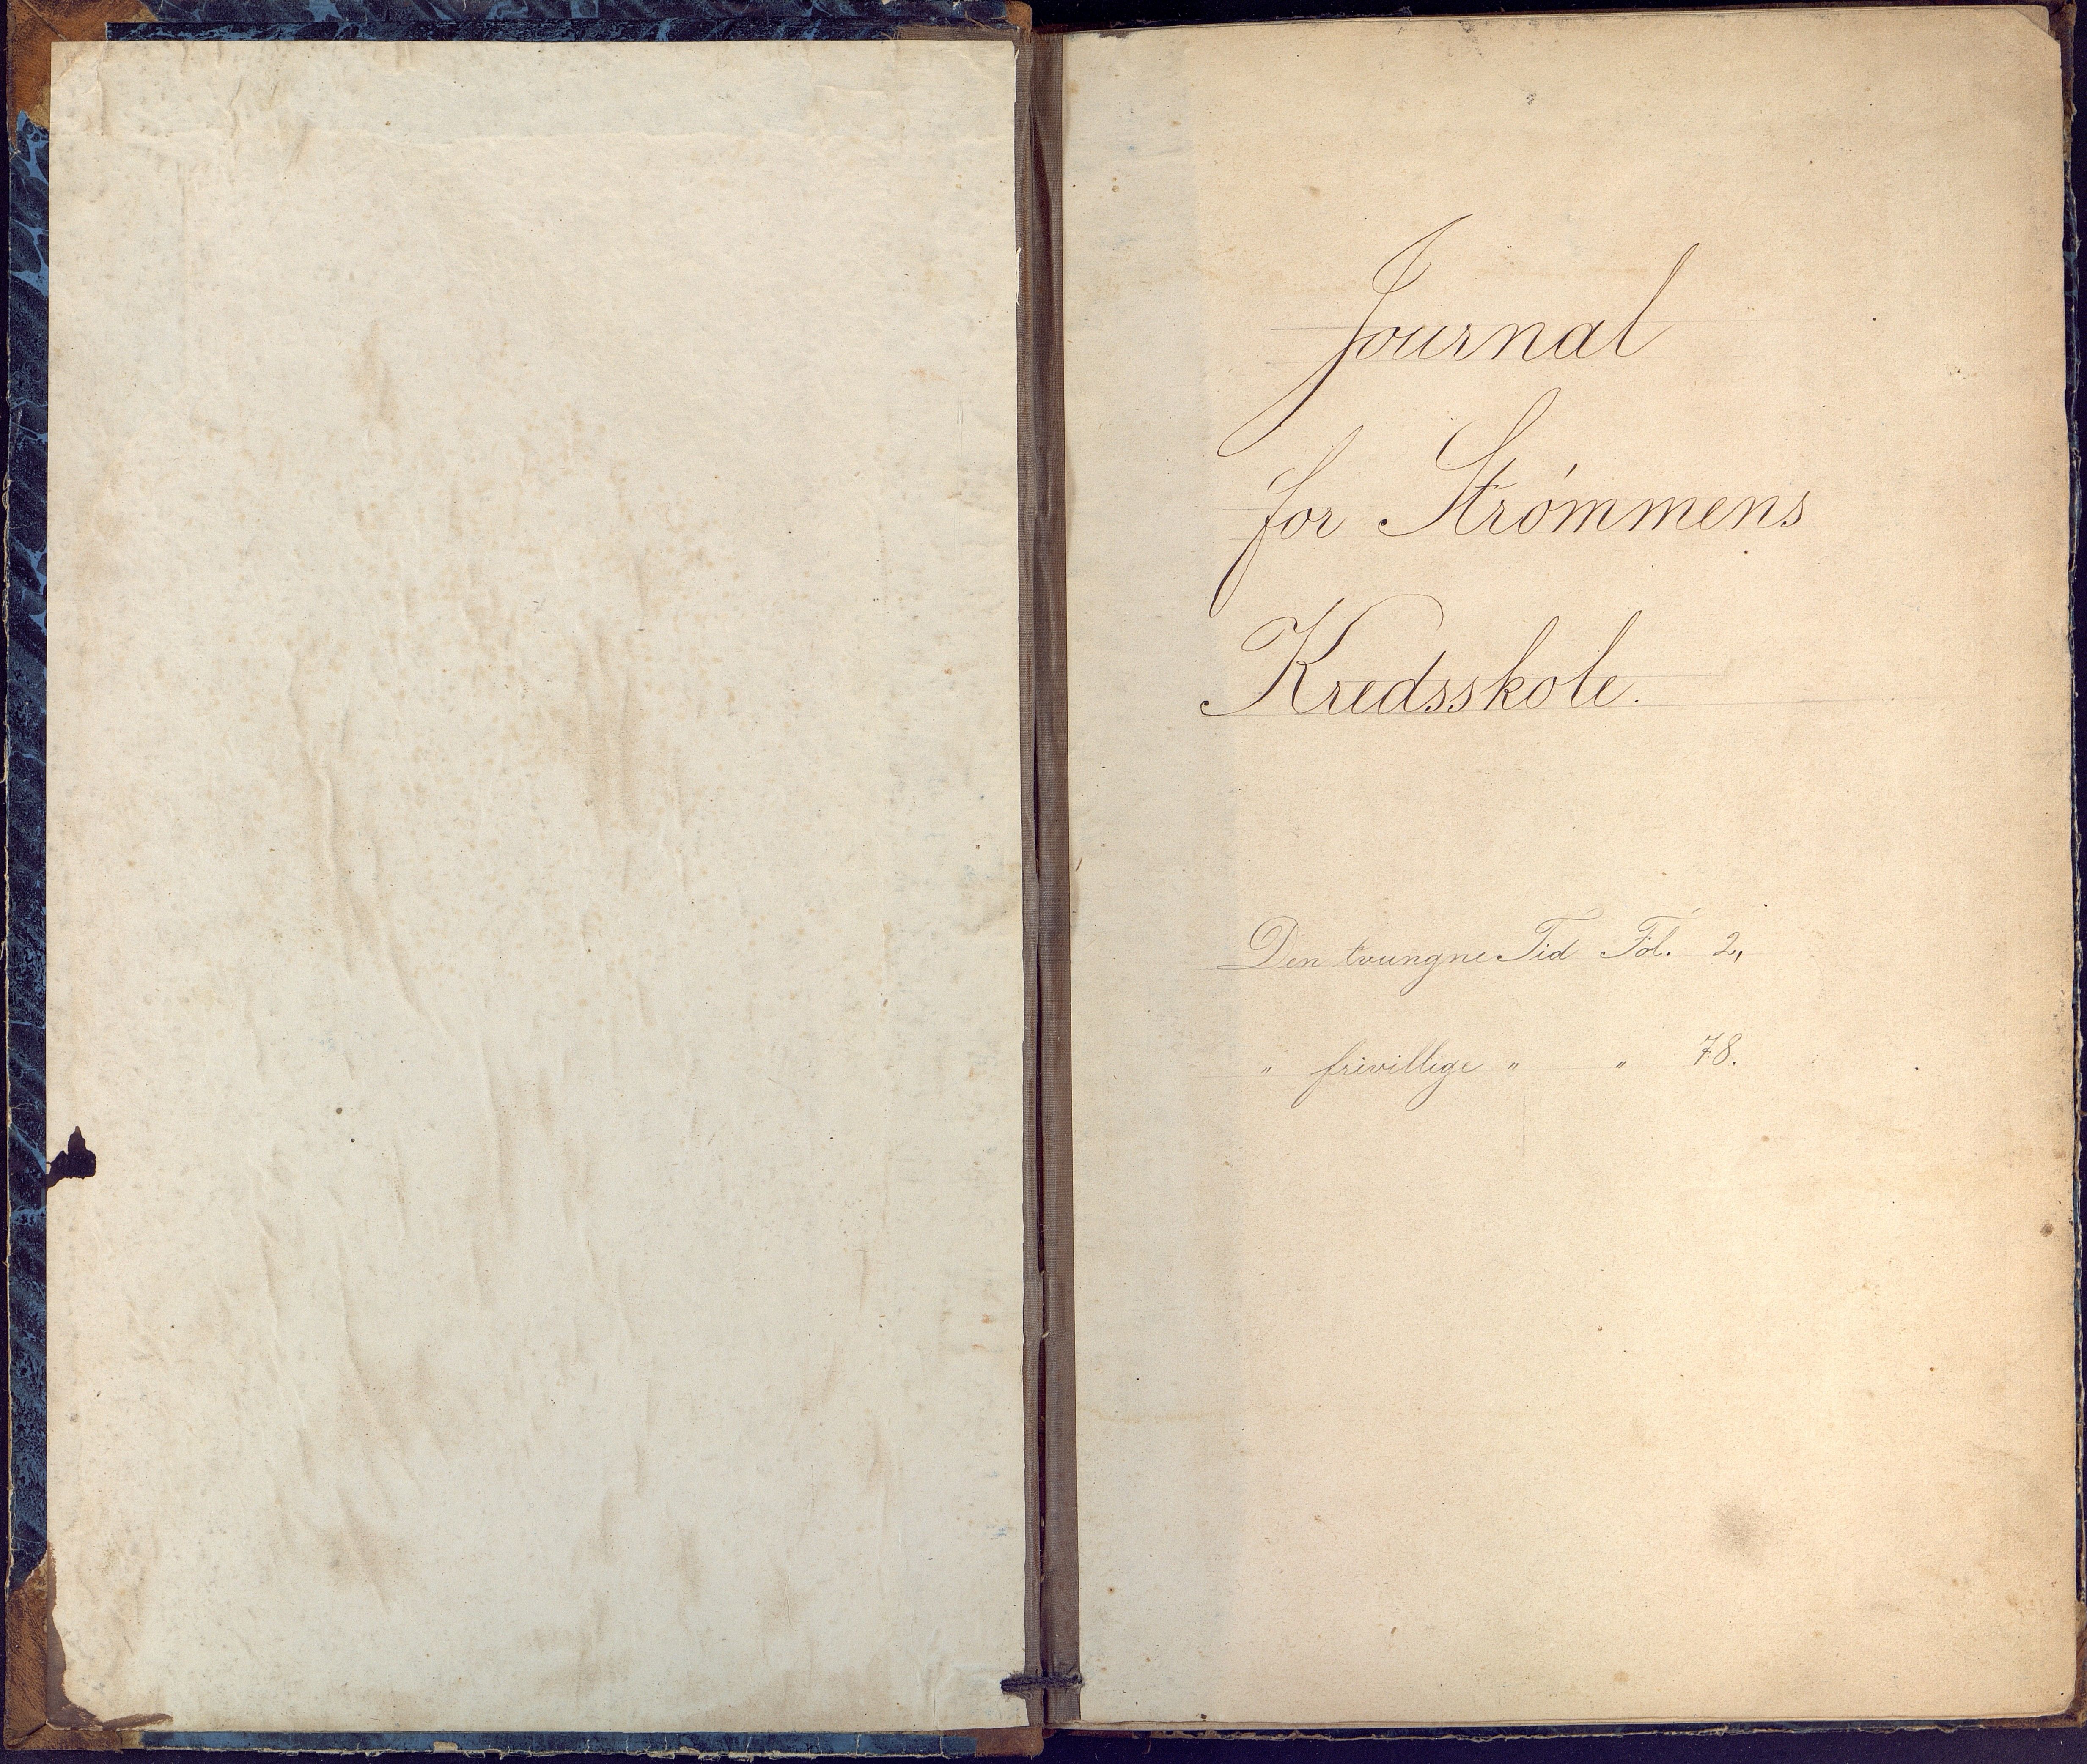 Journal
for Strømmens
Kredsskole.
Den tvungne Tid Fol. 2,
" frivillige " " 78.